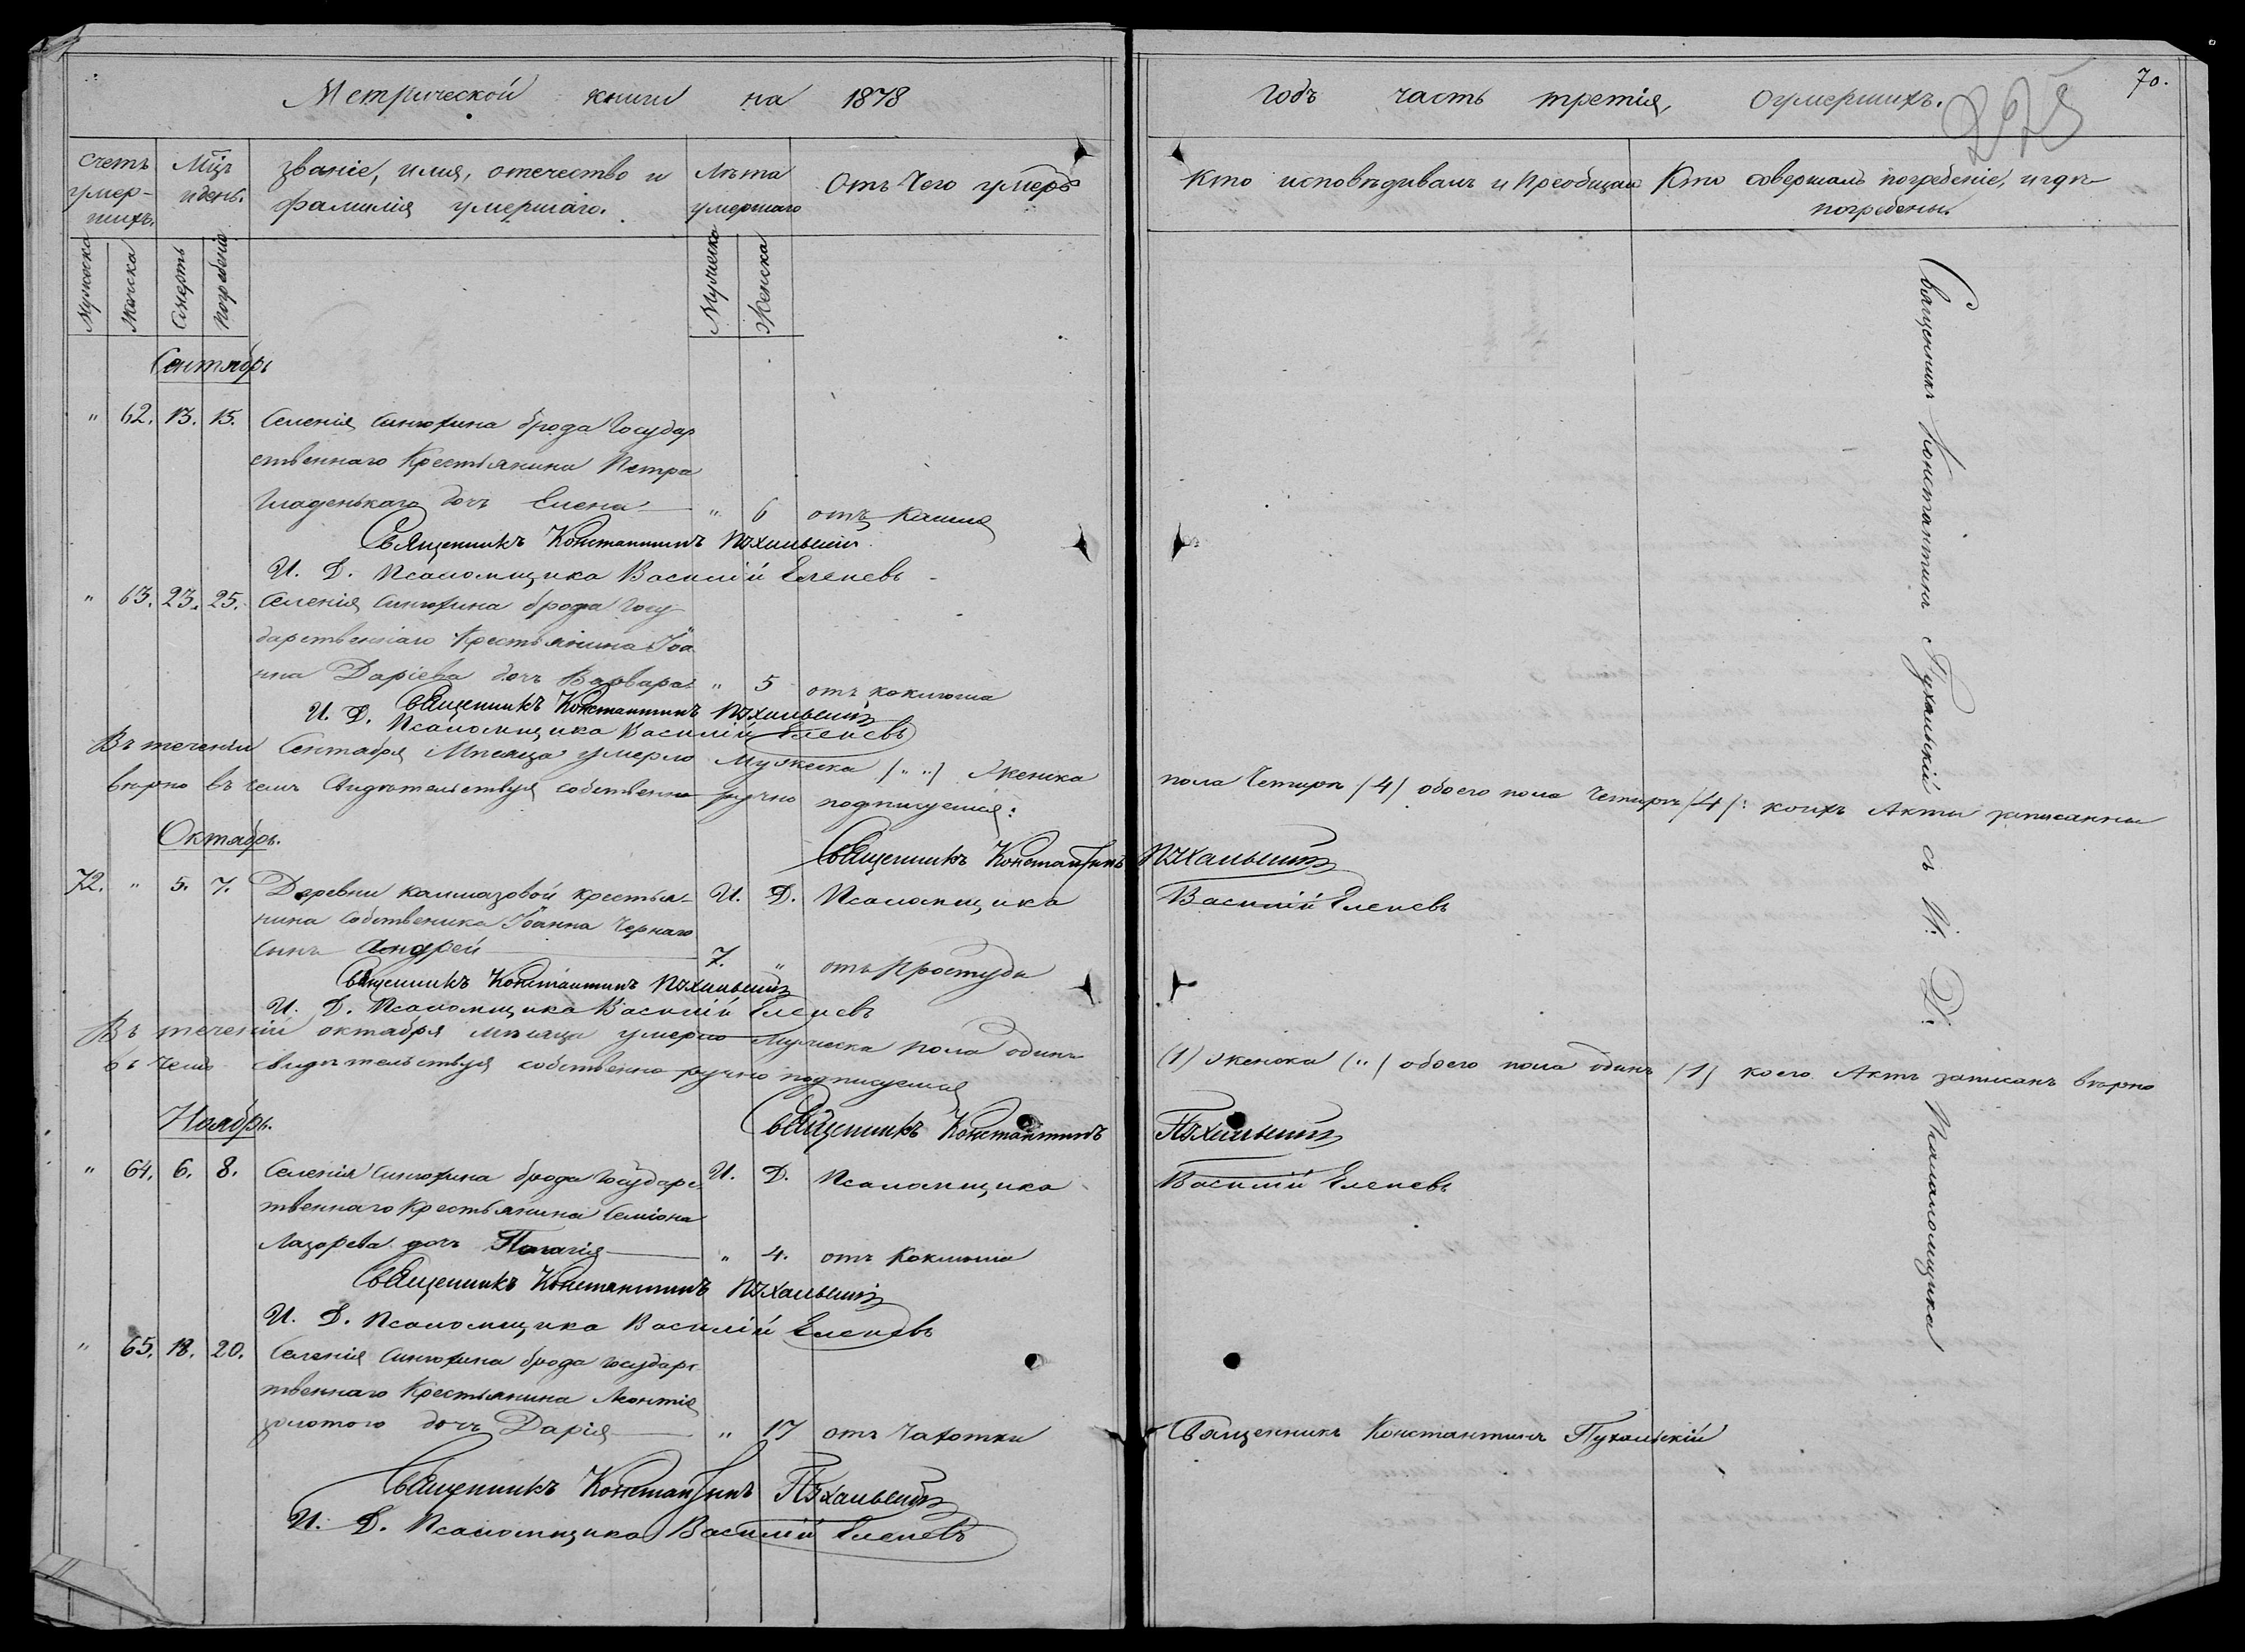 Метрической книги на 1878
счетъ умер-шихъ.
Мцъ и день.
званіе, имя, отечество и
фамилія умершаго.
Лѣта
умершаго
Отъ чего умеръ
Мужеска
Женска
Смерть
Погребенія
Мужеска
Женска
Сентябрь
" 62. 13. 15. Селенія Синюхина брода Государ
ственнаго Крестьянина Петра
Гладенькаго дочь Елена " 6 отъ кашля
Священникъ Константинъ Пухальскій
И. Д. Псаломщика Василій Еленевъ
" 63. 23. 25. Селенія Синюхина брода Госу
дарственнаго Крестьянина Іоа
нна Даріева дочь Варвара " 5 отъ коклюша
Священникъ Константинъ Пухальскій
И. Д. Псаломщика Василій Еленевъ
Въ теченіи Сентября Мѣсяца умерло Мужеска (" ") Женска
вѣрно въ чемъ Свидѣтельствуя собственно ручно подписуемся:
Октябрь.
Священникъ Константинъ
72. " 5. 7. Деревни Калмазовой крестья- И. Д. Псаломщика
нина Собственика Іоанна Чернаго
Сынъ Андрей 7. " отъ Простуды
Священникъ Константинъ Пухальскій
И. Д. Псаломщика Василій Еленевъ
Въ теченіи октября мѣсяца умерло Мужеска пола одинъ
въ чемъ свидѣтельствуя собственно ручно подписуемся
Ноябрь.
Священникъ Константинъ
" 64. 6. 8. Селенія Синюхина брода Государс И. Д. Псаломщика
твеннаго Крестьянина Семіона
Лазорева дочь Пелагія " 4. отъ Коклюша
Священникъ Константинъ Пухальскій
И. Д. Псаломщика Василій Еленевъ
" 65. 18. 20. Селенія Синюхина брода Государс
твеннаго Крестьянина Леонтія
золотого дочь Дарія " 17 отъ Чахотки
Священникъ Константинъ Пухальскій
И. Д. Псаломщика Василій Еленевъ
70.
годъ часть третія, О умершихъ.
Кто исповѣдивалъ и Преобщал
Кто совершалъ погребеніе, и гдѣ
погребены.
пола Четыре (4) обоего пола Четыре (4): коихъ Акты записанны
Пухальскій
Василій Еленевъ
(1) Женска (") обоего пола одинъ (1) коего Актъ записанъ вѣрно
Пухальскій
Василій Еленевъ
Священникъ Константинъ Пухальскій
Священникъ Константинъ Пухальскій съ И. Д. Псаломщика